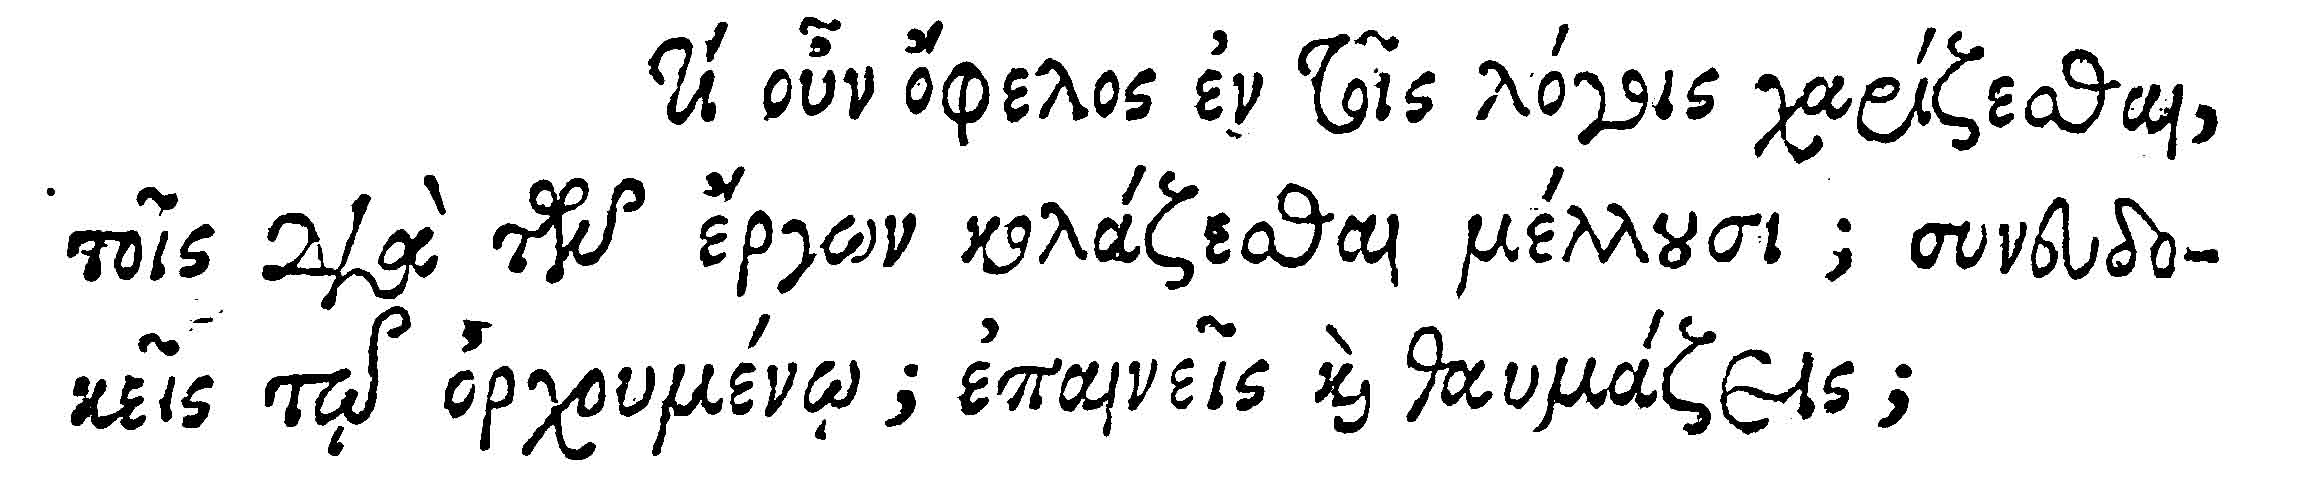 Τί οὖν ὄφελος ἐν τοῖς λόγοις χαρίζεσθαι,
τοῖς διὰ τῶν ἔργων κολάζεσθαι μέλλουσι ; συνευδο-
κεῖς τῷ ὀρχουμένῳ ; ἐπαινεῖς καὶ θαυμάζεις ;